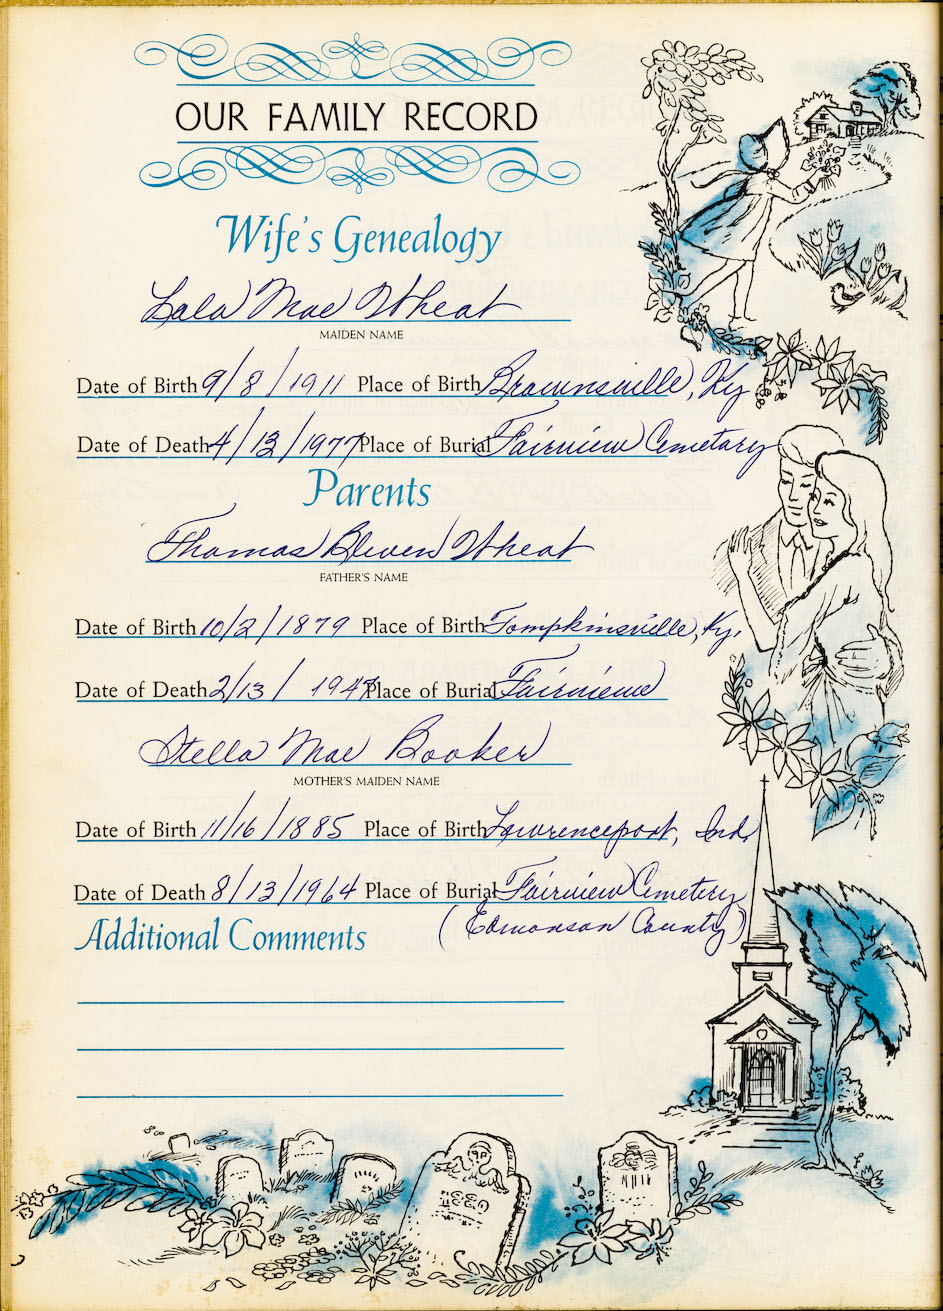 OUR FAMILY RECORD
Wife's Genealogy
Lala Mae Wheat
MAIDEN NAME
Date of Birth 9/8/1911 Place of Birth Brownsville, Ky
Date of Death 4/13/1977 Place of Burial Fairview Cemetary
Parents
Thomas Bleven Wheat
FATHER'S NAME
Date of Birth 10/2/1879 Place of Birth Tompkinsville, Ky.
Date of Death 2/13/1947 Place of Burial Fairview
Stella Mae Booker
MOTHER'S MAIDEN NAME
Date of Birth 11/16/1885 Place of Birth Lawrenceport, Ind.
Date of Death 8/13/1964 Place of Burial Fairview Cemetery
Additional Comments (Edmonson County)